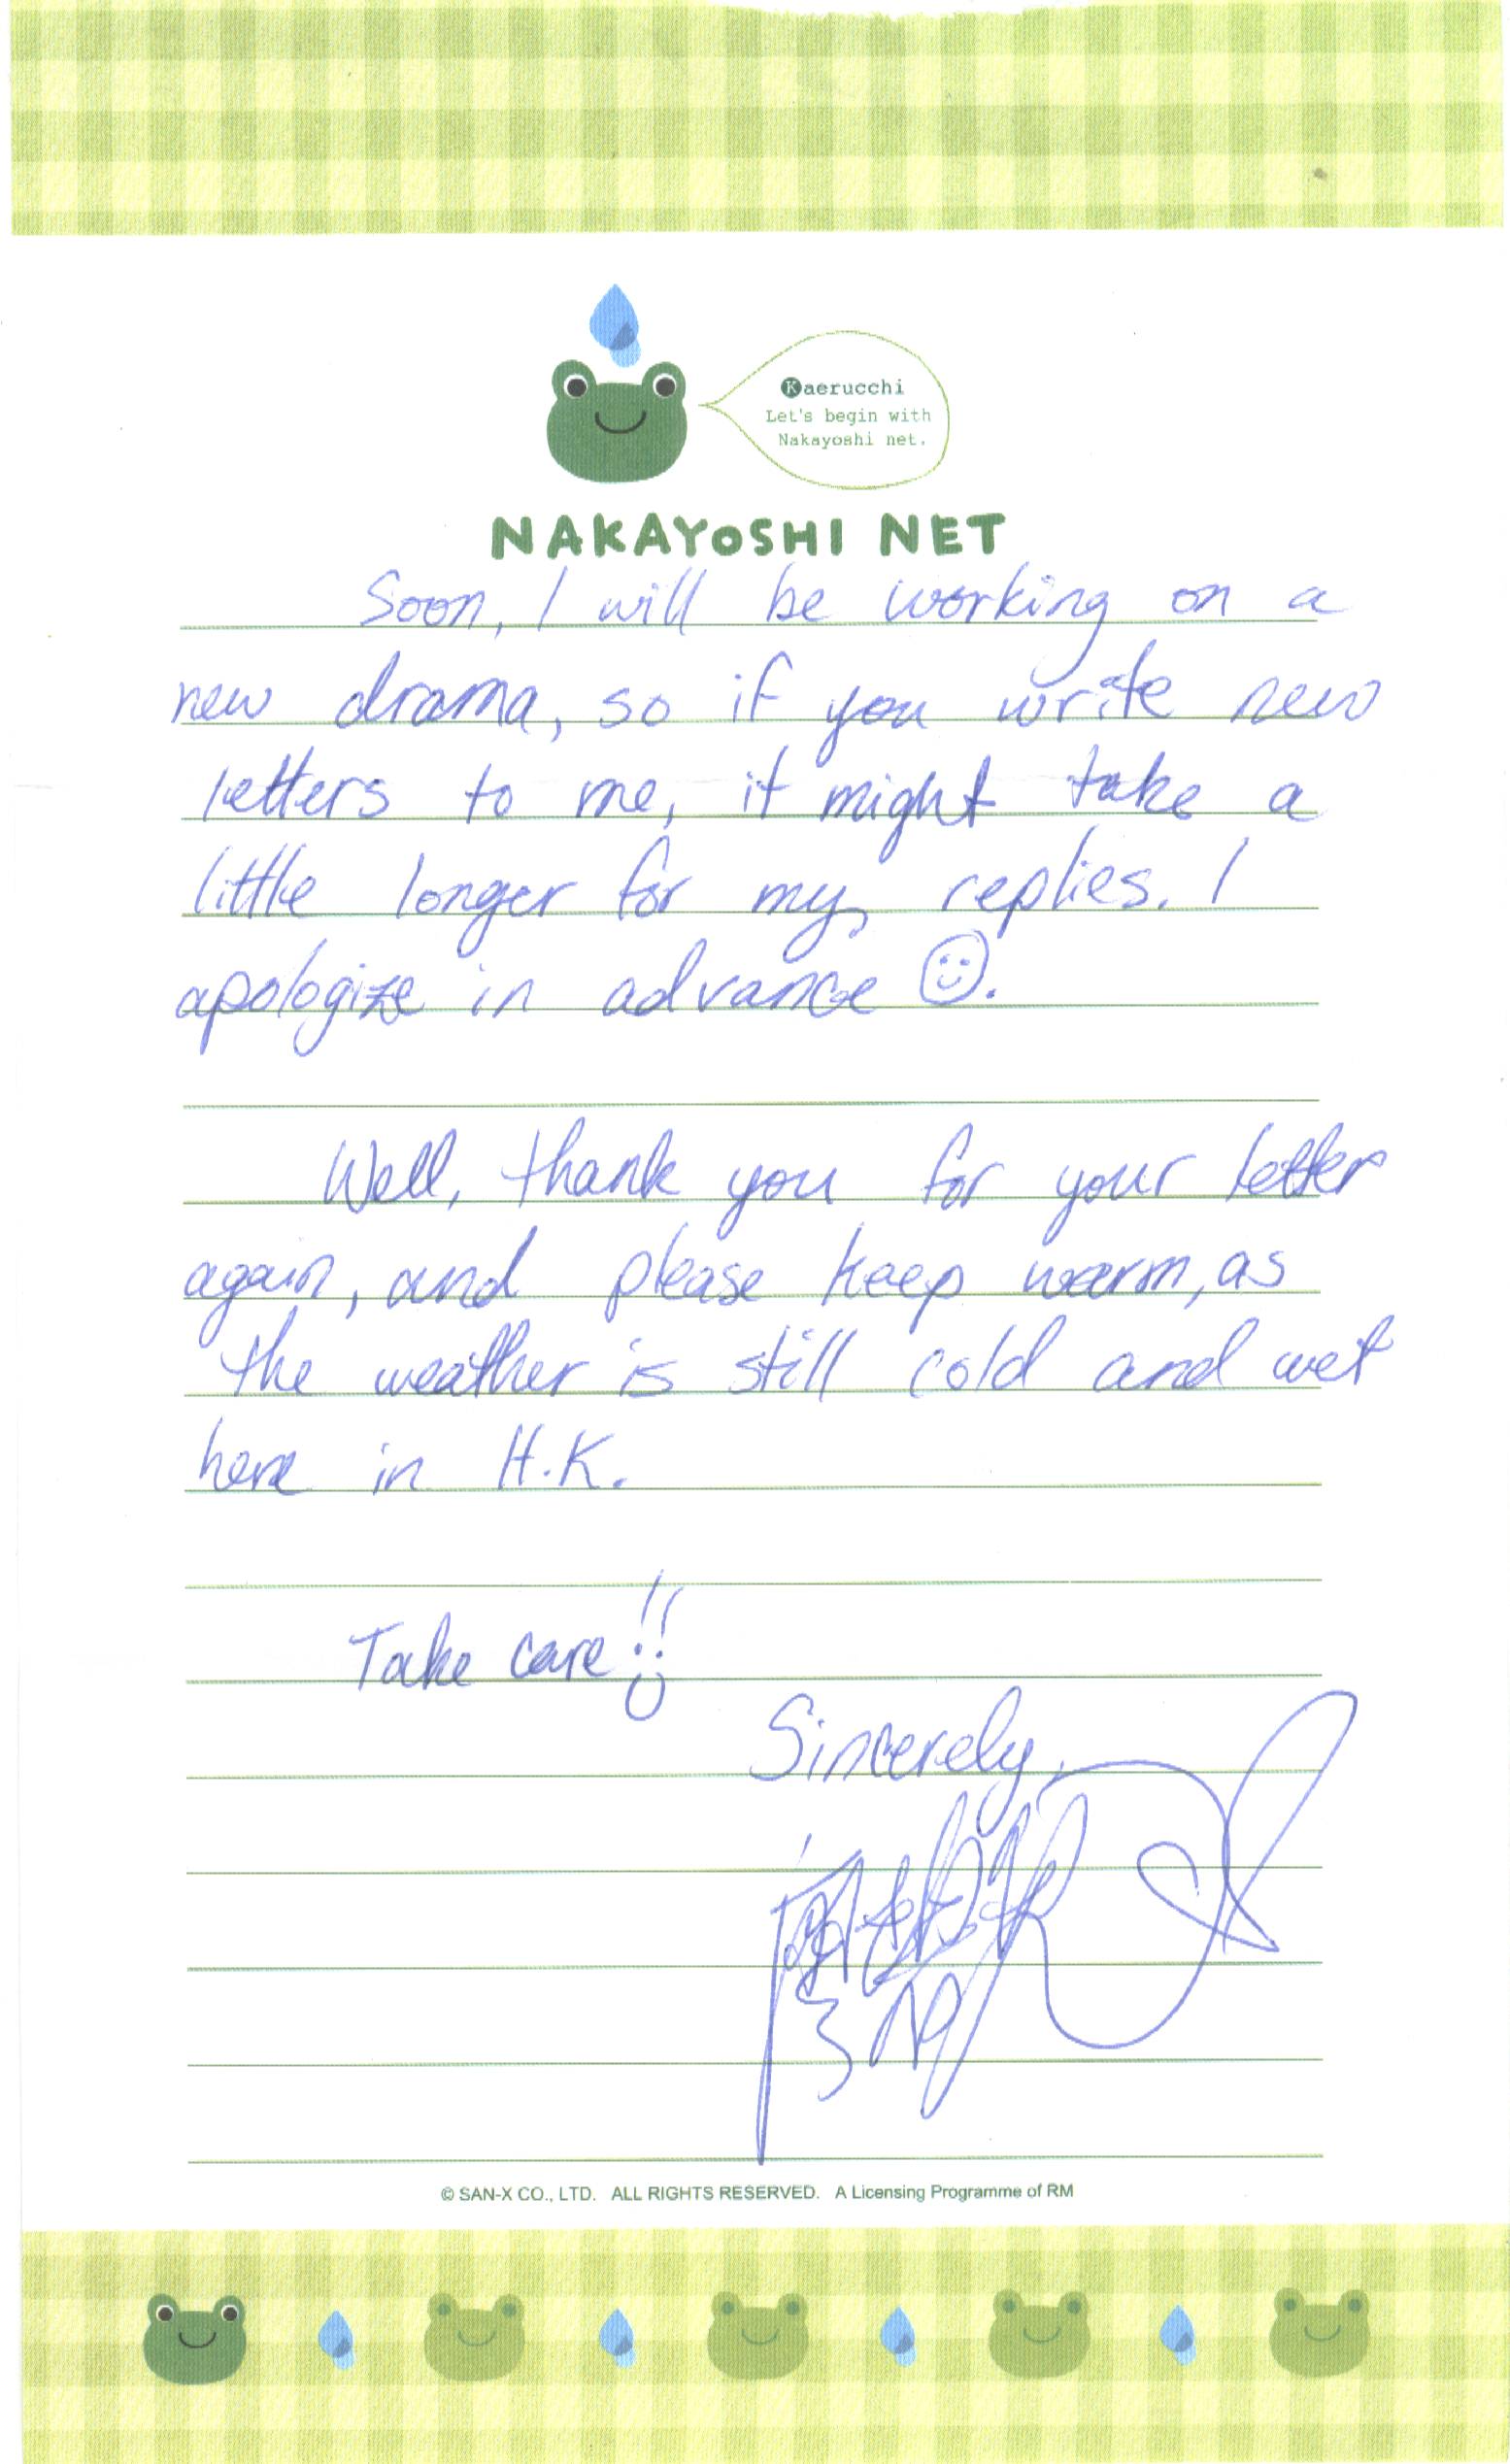 Kaerucchi
Let's begin with
Nakayoshi net.
NAKAYOSHI NET
Soon, I will be working on a
new drama, so if you write new
letters to me, it might take a
little longer for my replies. I
apologize in advance ☺.
Well, thank you for your letter
again, and please keep warm, as
the weather is still cold and wet
here in H.K.
Take care!!
Sincerely,
© SAN-X CO., LTD. ALL RIGHTS RESERVED. A Licensing Programme of RM